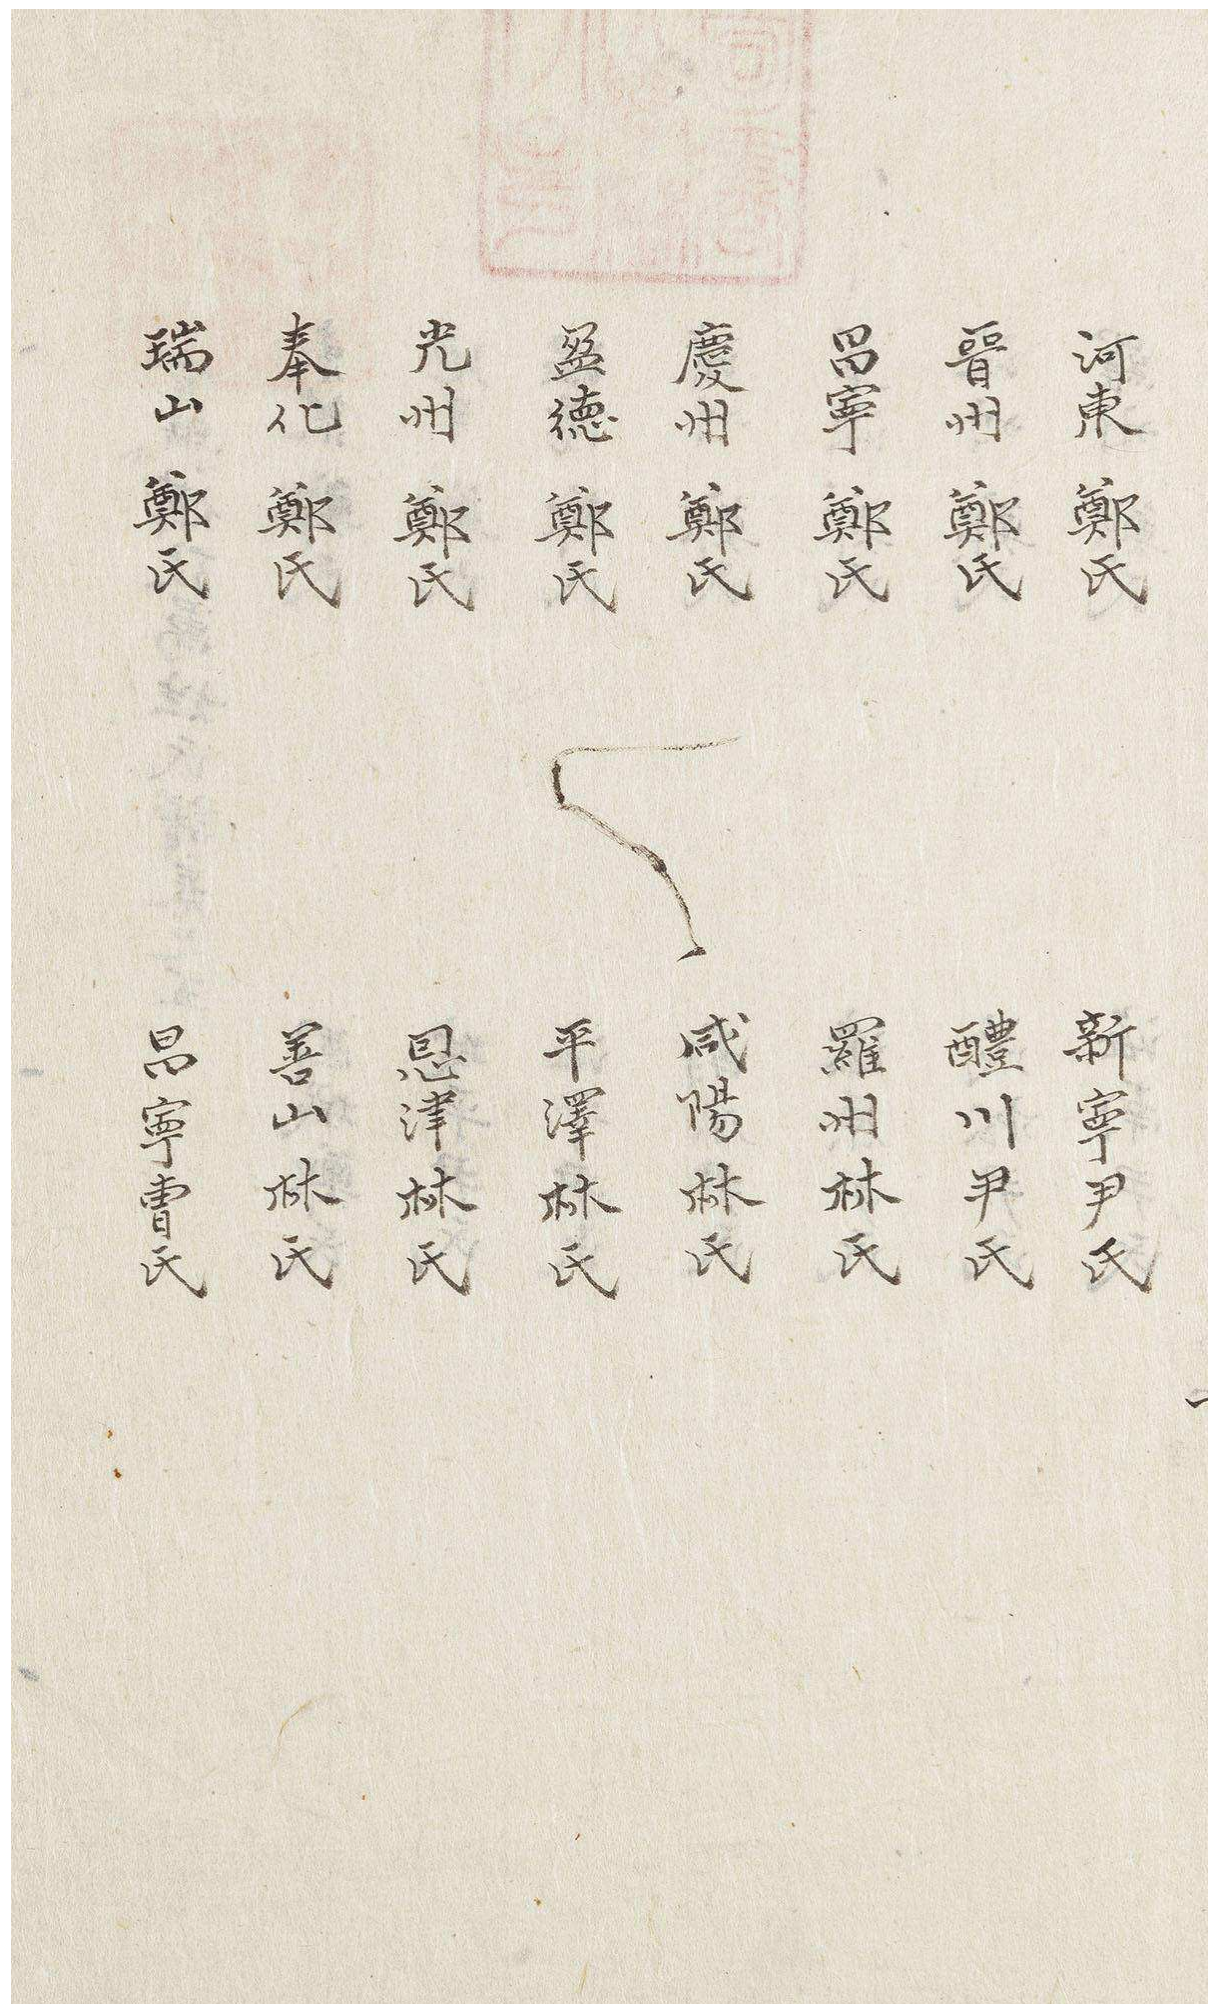 河東鄭氏
晉州鄭氏
昌寧鄭氏
慶州鄭氏
盈德鄭氏
光州鄭氏
奉化鄭氏
瑞山鄭氏
新寧尹氏
醴川尹氏
羅州林氏
咸陽林氏
平澤林氏
恩津林氏
善山林氏
昌寧曺氏